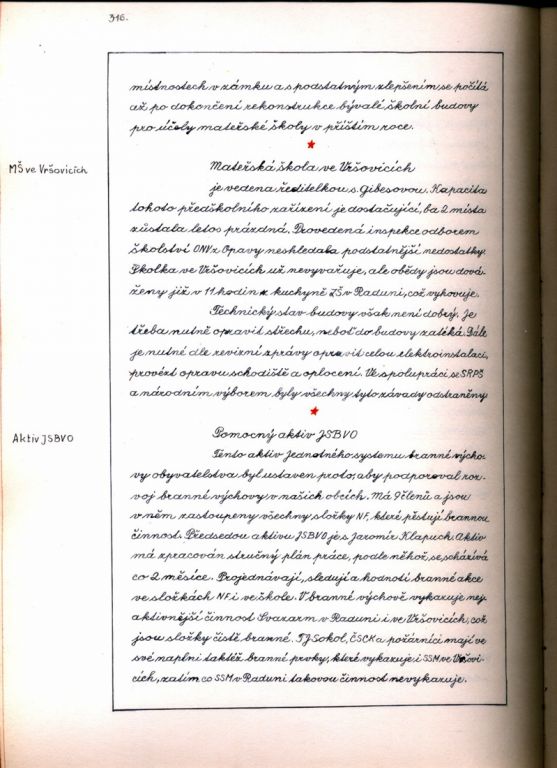 316.
místnostech v zámku a s podstatným zlepšením se počítá
až po dokončení rekonstrukce bývalé školní budovy
pro účely mateřské školy v příštím roce.
MŠ ve Vršovicích
Mateřská škola ve Vršovicích
je vedena ředitelkou s. Gibesovou. Kapacita
tohoto předškolního zařízení je dostačující, ba 2 místa
zůstala letos prázdná. Provedená inspekce odborem
školství ONV z Opavy neshledala podstatnější nedostatky.
Školka ve Vršovicích už nevyvařuje, ale obědy jsou dová-
ženy již v 11 hodin z kuchyně ZŠ v Raduni, což vyhovuje.
Technický stav budovy však není dobrý. Je
třeba nutně opravit střechu, neboť do budovy zatéká. Dále
je nutné dle revizní zprávy opravit celou elektroinstalaci,
provézt opravu schodiště a oplocení. Ve spolupráci se SRPŠ
a národním výborem byly všechny tyto závady odstraněny
Aktiv JSBVO
Pomocný aktiv JSBVO
Tento aktiv Jednotného systemu branné výcho-
vy obyvatelstva byl ustaven proto, aby podporoval roz-
voj branné výchovy v našich obcích. Má 9 členů a jsou
v něm zastoupeny všechny složky NF, které pěstují brannou
činnost. Předsedou aktivu JSBVO je s. Jaromír Klapuch. Aktiv
má zpracován stručný plán práce, podle něhož se schází vá
co 2 měsíce. Projednávají, sledují a hodnotí branné akce
ve složkách NF i ve škole. V branné výchově vykazuje nej-
aktivnější činnost Svazarm v Raduni i ve Vršovicích, což
jsou složky čistě branné. TJ Sokol, ČSČK a požárníci mají ve
své náplni taktéž branné prvky, které vykazuje i SSM ve Vršovi-
cích, zatím co SSM v Raduni takovou činnost nevykazuje.